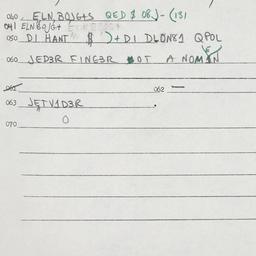 040. ELN, BOJG+S QED $ 08J-(131
041 ELNBOJG+
050 DI HANT $ )+DI DLON81 QPOL
060 JED3R FING3R NOT A NOMIN
061 062 —
063 JETV1D3R .
070 O